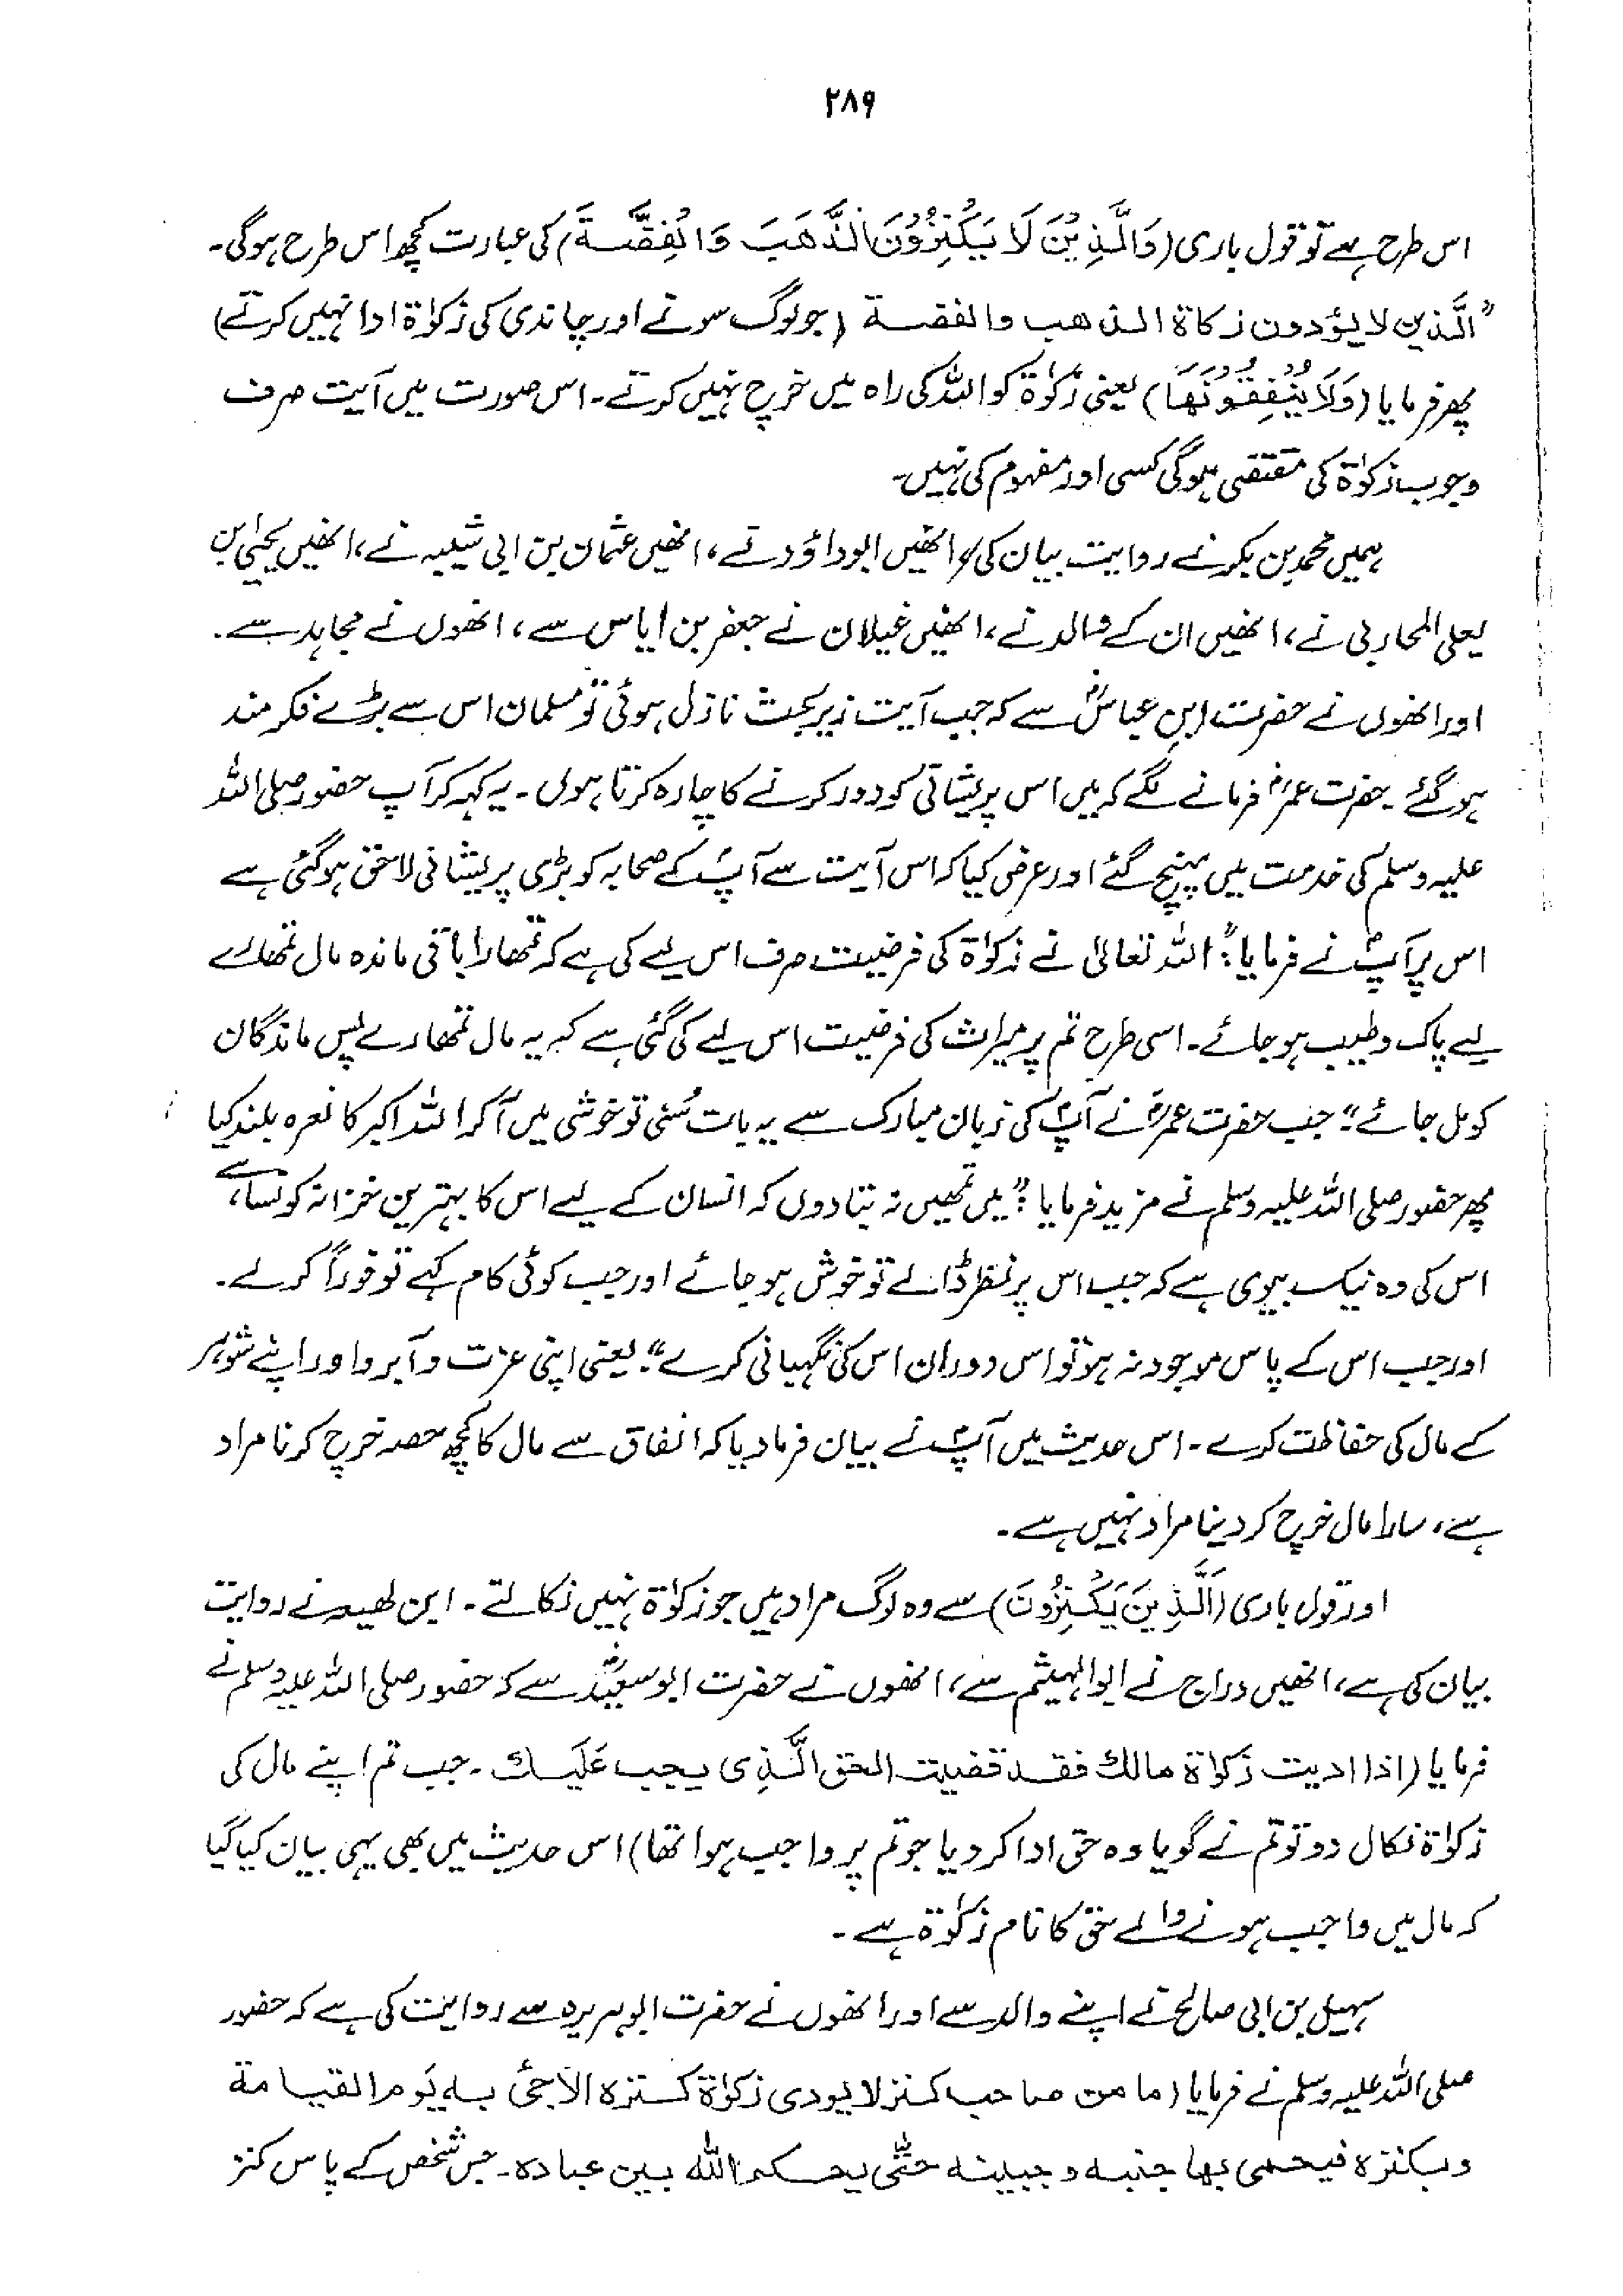 ۲۸۹
اس طرح ہے تو قول باری (وَالَّذِيْنَ لَا يَكْنِزُوْنَ الذَّهَبَ وَالْفِضَّةَ) کی عبارت کچھ اس طرح ہوگی۔
"الَّذین لا یؤدون زکاة الذهب والفضة (جو لوگ سونے اور چاندی کی زکوٰۃ ادا نہیں کرتے)
پھر فرمایا (وَلَا يُنْفِقُوْنَهَا) یعنی زکوٰۃ کو اللہ کی راہ میں خرچ نہیں کرتے۔ اس صورت میں آیت صرف
وجوب زکوٰۃ کی مقتضی ہوگی کسی اور مفہوم کی نہیں۔
ہمیں محمد بن بکر نے روایت بیان کی، انھیں ابوداؤد نے، انھیں عثمان بن ابی شیبہ نے، انھیں یحییٰ بن
یعلی المحاربی نے، انھیں ان کے والد نے، انھیں غیلان نے جعفر بن ایاس سے، انھوں نے مجاہد سے۔
اور انھوں نے حضرت ابن عباسؓ سے کہ جب آیت زیر بحث نازل ہوئی تو مسلمان اس سے بڑے فکر مند
ہو گئے۔ حضرت عمرؓ فرمانے لگے کہ میں اس پریشانی کو دور کرنے کا چارہ کرتا ہوں۔ یہ کہہ کر آپ حضور صلی اللہ
علیہ وسلم کی خدمت میں پہنچ گئے اور عرض کیا کہ اس آیت سے آپؐ کے صحابہ کو بڑی پریشانی لاحق ہو گئی ہے
اس پر آپؐ نے فرمایا: "اللہ تعالیٰ نے زکوٰۃ کی فرضیت صرف اس لیے کی ہے کہ تمھارا باقی ماندہ مال تمھارے
لیے پاک وطیب ہو جائے۔ اسی طرح تم پر میراث کی فرضیت اس لیے کی گئی ہے کہ یہ مال تمھارے پس ماندگان
کو مل جائے" جب حضرت عمرؓ نے آپؐ کی زبان مبارک سے یہ بات سُنی تو خوشی میں آ کر اللہ اکبر کا نعرہ بلند کیا
پھر حضور صلی اللہ علیہ وسلم نے مزید فرمایا: "میں تمھیں نہ بتا دوں کہ انسان کے لیے اس کا بہترین خزانہ کونسا ہے،
اس کی وہ نیک بیوی ہے کہ جب اس پر نظر ڈالے تو خوش ہو جائے اور جب کوئی کام کہے تو فوراً کرلے۔
اور جب اس کے پاس موجود نہ ہو تو اس دوران اس کی نگہبانی کرے" یعنی اپنی عزت و آبرو اور اپنے شوہر
کے مال کی حفاظت کرے۔ اس حدیث میں آپؐ نے بیان فرما دیا کہ انفاق سے مال کا کچھ حصہ خرچ کرنا مراد
ہے، سارا مال خرچ کر دینا مراد نہیں ہے۔
اور قول باری (اَلَّذِيْنَ يَكْنِزُوْنَ) سے وہ لوگ مراد ہیں جو زکوٰۃ نہیں نکالتے۔ ابن لھیعہ نے روایت
بیان کی ہے، انھیں دراج نے ابوالہیثم سے، انھوں نے حضرت ابو سعیدؓ سے کہ حضور صلی اللہ علیہ وسلم نے
فرمایا (اذا ادیت زکواة مالك فقد قضیت الحق الَّذِی یجب عَلَیك۔ جب تم اپنے مال کی
زکوٰۃ نکال دو تو تم نے گویا وہ حق ادا کر دیا جو تم پر واجب ہوا تھا) اس حدیث میں بھی یہی بیان کیا گیا
کہ مال میں واجب ہونے والے حق کا نام زکوٰۃ ہے۔
سہیل بن ابی صالح نے اپنے والد سے اور انھوں نے حضرت ابو ہریرہ سے روایت کی ہے کہ حضور
صلی اللہ علیہ وسلم نے فرمایا (ما من صاحب کنز لا یودی زکوٰة کنزه الا جیٔ به یَوم القیامة
وبکنزه فیحمی بها جنبه وجبینه حتّٰی یحکم اللّٰه بین عباده۔ جس شخص کے پاس کنز